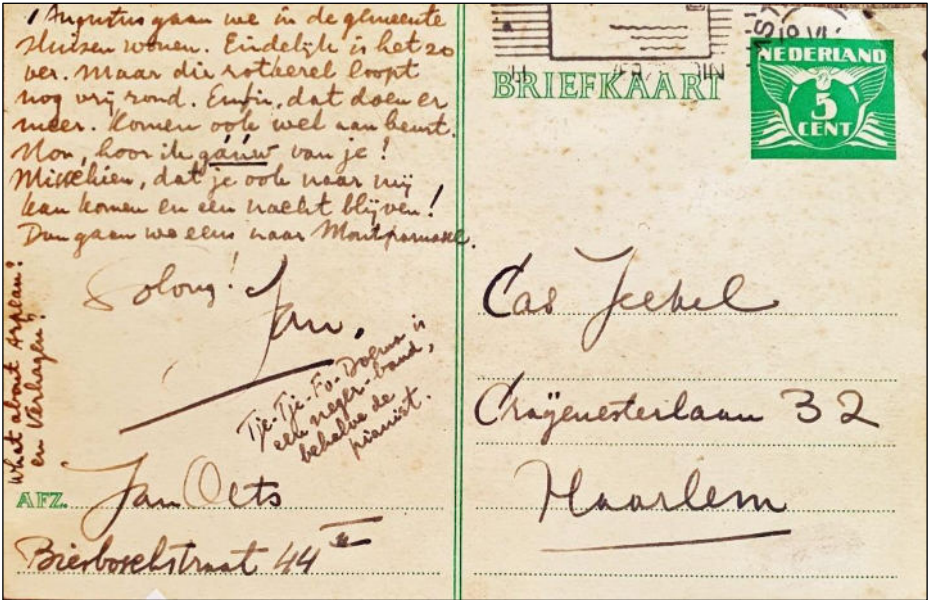 1 Augustus gaan we in de gemeente
Huisen wonen. Eindelijk is het zo
ver. Maar die rotkerel loopt
nog vrij rond. Enfin, dat doen er
meer. Komen ook wel aan beurt.
Nou, hoor ik gáúw van je!
Misschien, dat je ook naar mij
kan komen en een nacht blijven!
Dan gaan we eens naar Montparnasse.
Solong!
Jan.
What about Arplan?
en Verhagen?
Tje-Tje-Fo-Doema is
een neger-band,
behalve de
pianist.
AFZ. Jan Oets
Biesboschstraat 44 II
BRIEFKAART
NEDERLAND
5
CENT
Cas
Crayenesterlaan 32
Haarlem